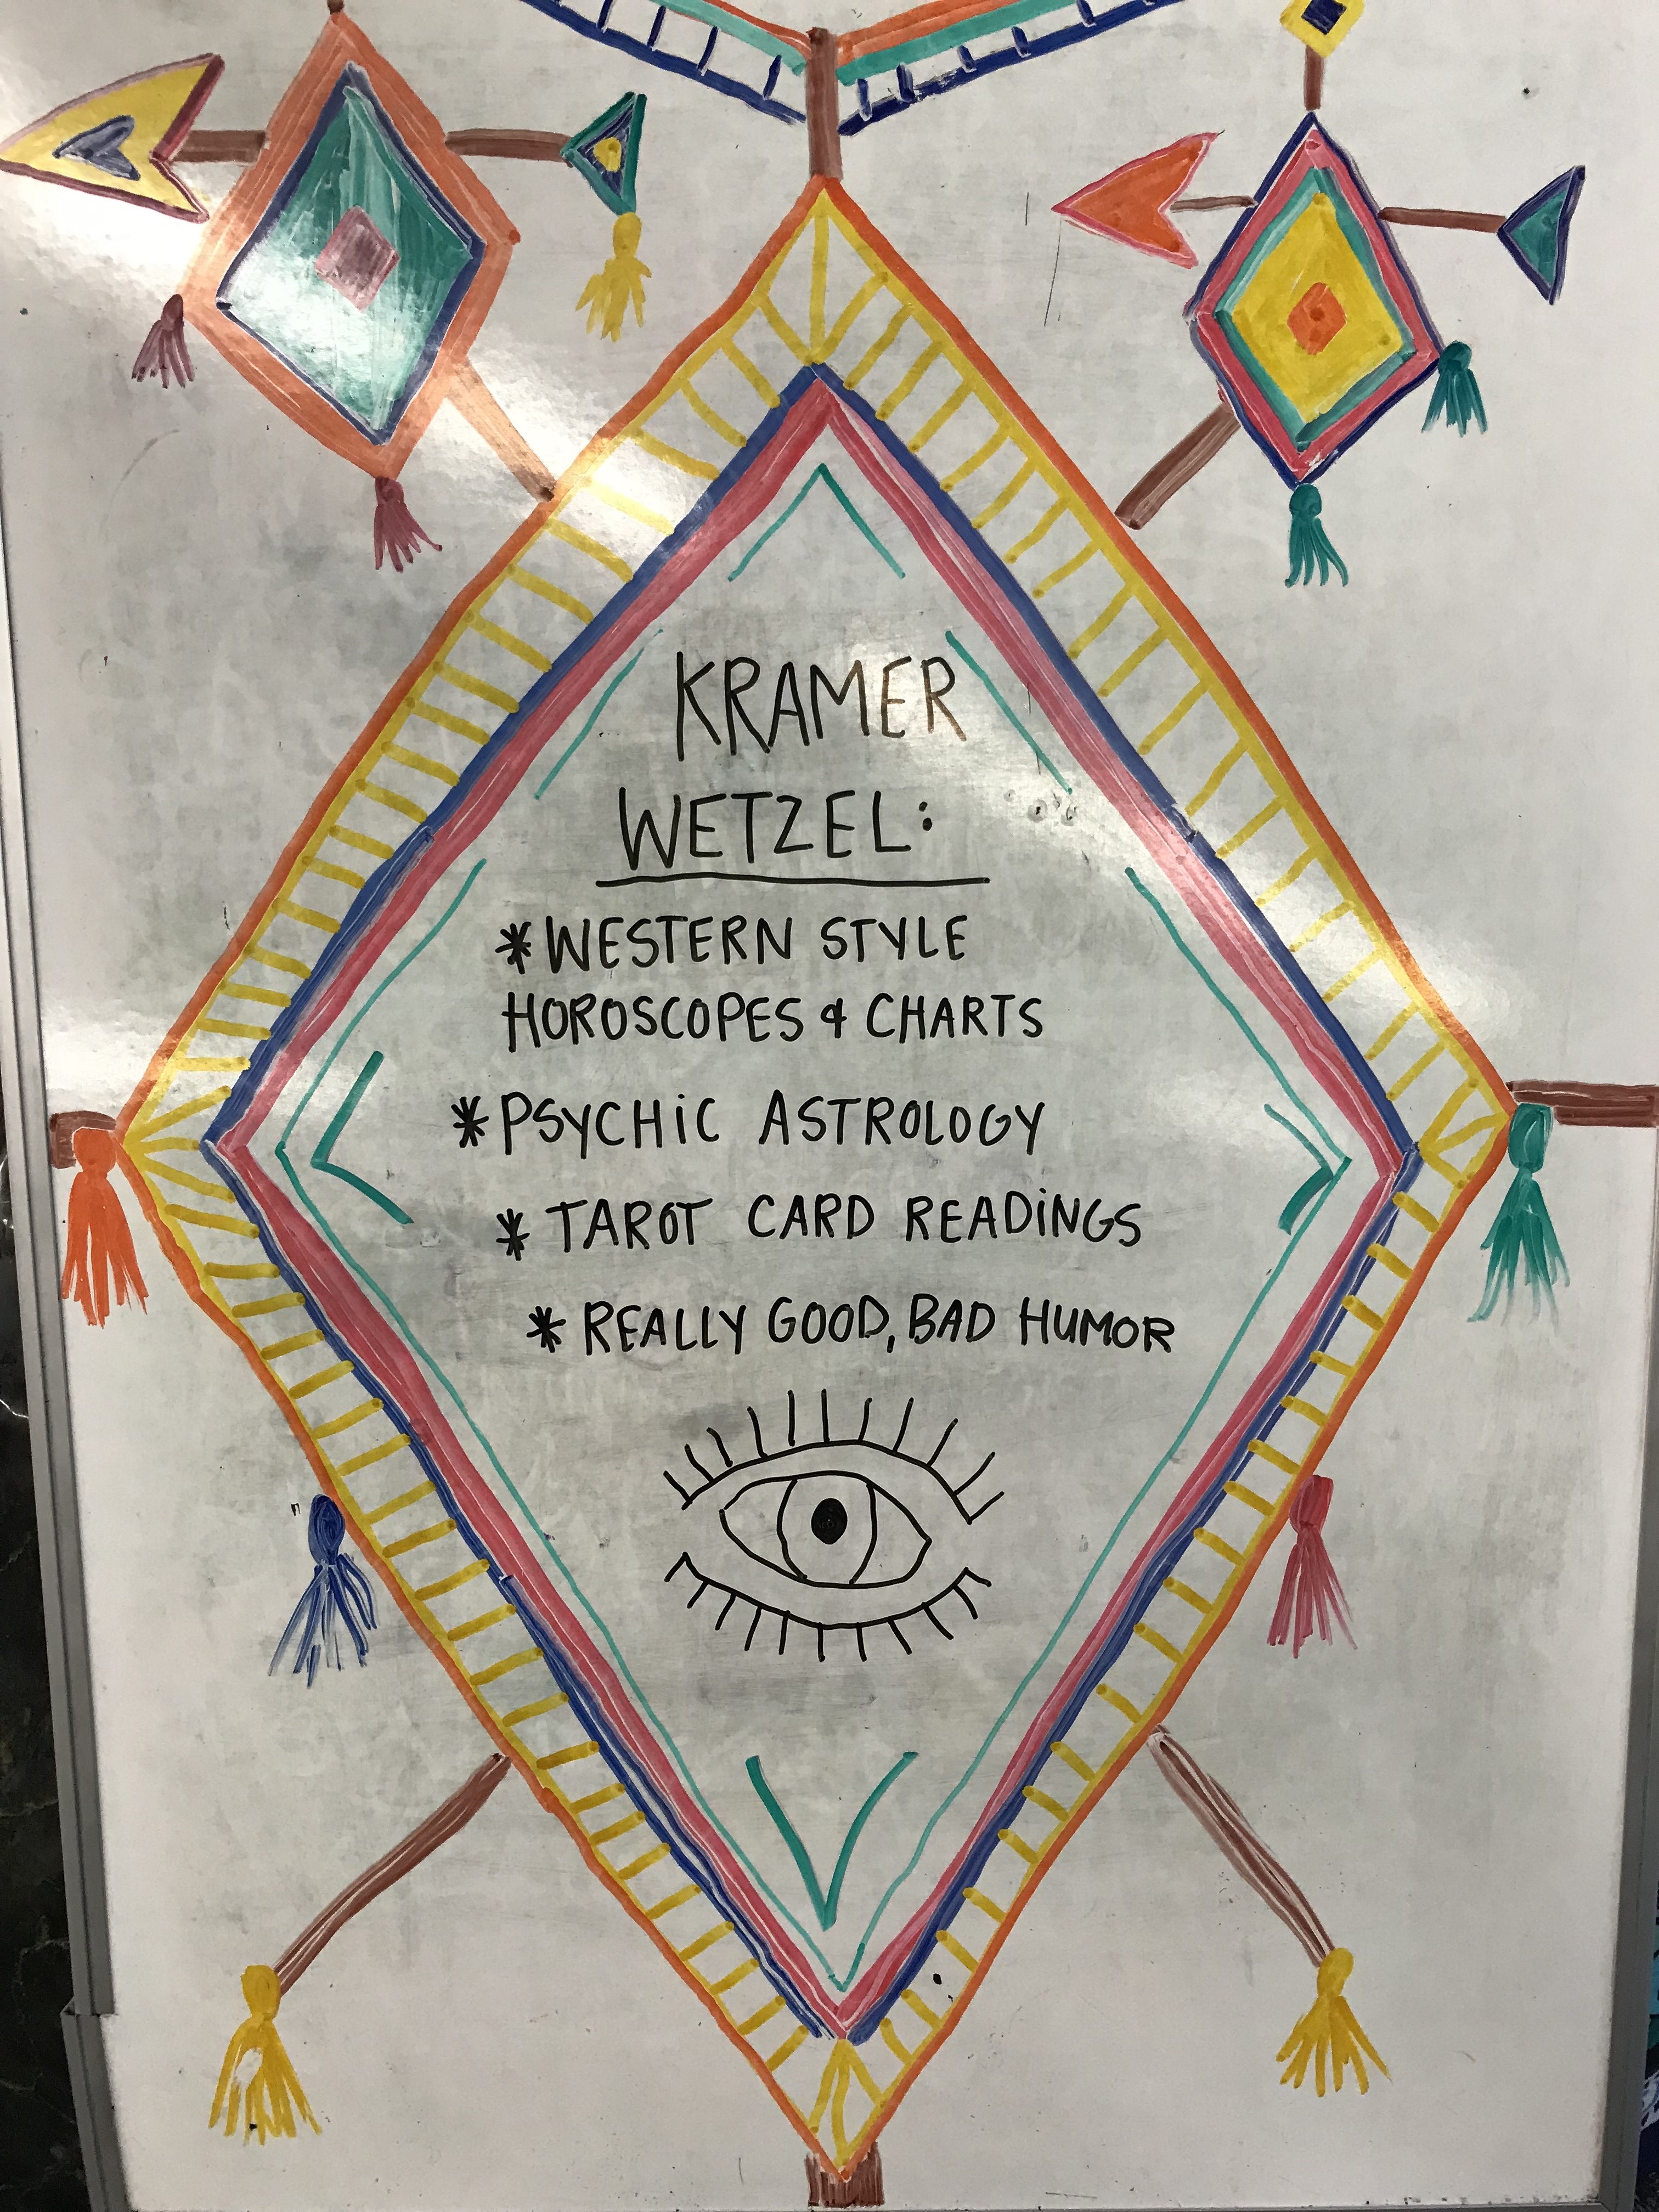 KRAMER
WETZEL:
*WESTERN STYLE
HOROSCOPES & CHARTS
*PSYCHiC ASTROLOGY
* TAROT CARD READiNGS
* REALLY GOOD, BAD HUMOR